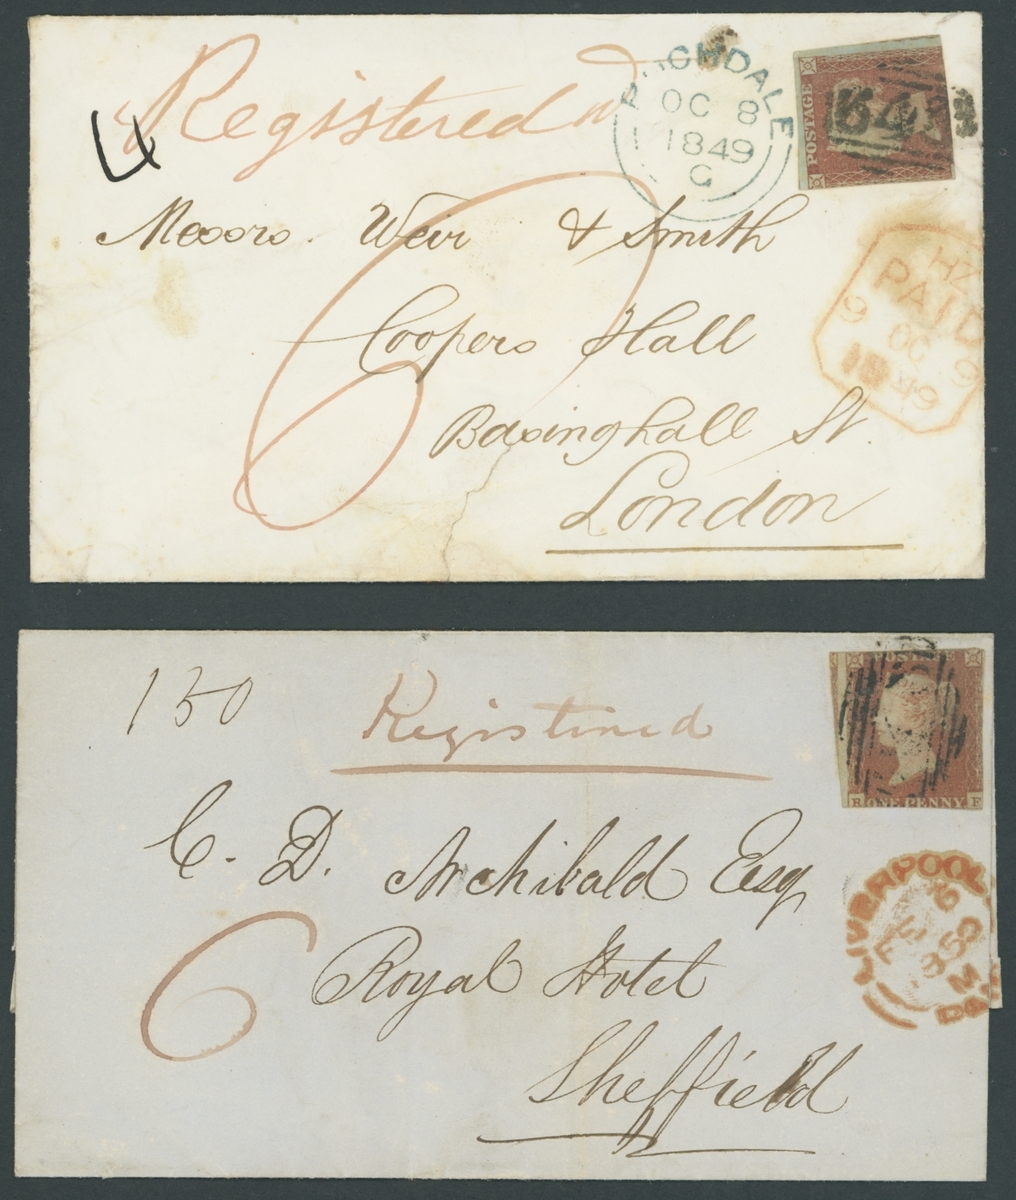 Registered
ROCHDALE
OC 8
1849
G
POSTAGE
4
Messrs. Weir & Smith
Coopers Hall
Basinghall St.
London
6
HZ
PAID
9 OC 9
1849
130
Registered
ONE PENNY
C. D. Archibald Esq
Royal Hotel
Sheffield
6
LIVERPOOL